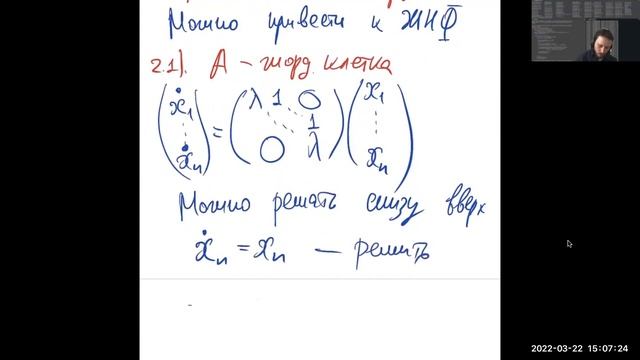 Можно привести к ЖНФ
2.1). A – жорд. клетка
(ẋ₁ ⋮ ẋₙ) = (λ 1 0 ⋱ 1 0 λ) (x₁ ⋮ xₙ)
Можно решать снизу вверх
ẋₙ = xₙ — решить
2022-03-22 15:07:24